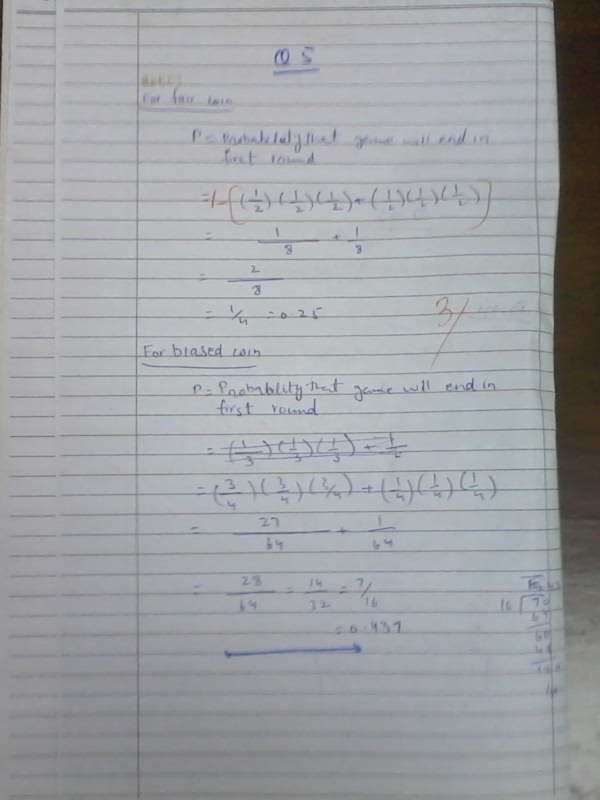 Q 5
For fair coin
P = Probability that game will end in
first round
= 1 - [(1/2) (1/2) (1/2) + (1/2) (1/2) (1/2)]
= 1/8 + 1/8
= 2/8
= 1/4 = 0.25
3/
For biased coin
P = Probability that game will end in
first round
= (1/3) (1/3) (1/3) + 1
= (3/4) (3/4) (3/4) + (1/4) (1/4) (1/4)
= 27/64 + 1/64
= 28/64 = 14/32 = 7/16
= 0.437
16 70
64
60
48